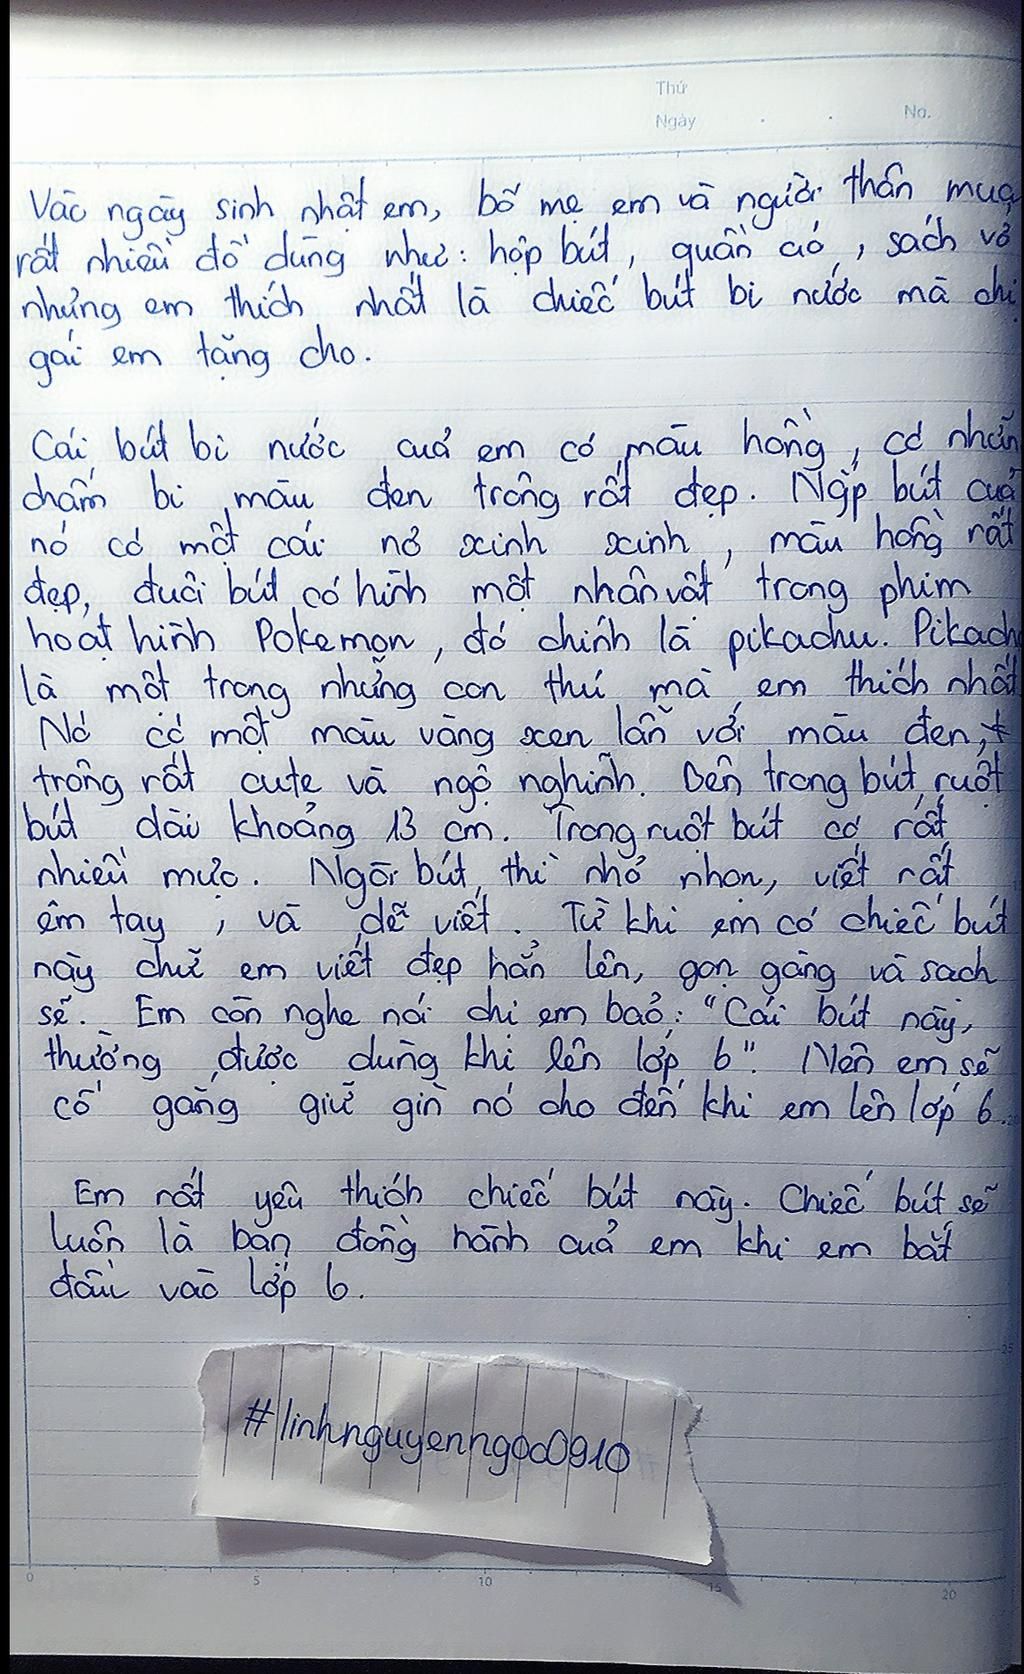 Thứ
Ngày . . No.
Vào ngày sinh nhật em, bố mẹ em và người thân mua
rất nhiều đồ dùng như: hộp bút, quần áo, sách vở
nhưng em thích nhất là chiếc bút bi nước mà chị
gái em tặng cho.
Cái bút bi nước của em có màu hồng, có nhân
chấm bi màu đen trông rất đẹp. Nắp bút của
nó có một cái nơ xinh xinh, màu hồng rất
đẹp, đuôi bút có hình một nhân vật trong phim
hoạt hình Pokemon, đó chính là pikachu. Pikachu
là một trong những con thú mà em thích nhất.
Nó có một màu vàng xen lẫn với màu đen,
trông rất cute và ngộ nghĩnh. Bên trong bút, ruột
bút dài khoảng 13 cm. Trong ruột bút có rất
nhiều mực. Ngòi bút thì nhỏ nhọn, viết rất
êm tay, và dễ viết. Từ khi em có chiếc bút
này chữ em viết đẹp hẳn lên, gọn gàng và sạch
sẽ. Em còn nghe nói chị em bảo: "Cái bút này,
thường được dùng khi lên lớp 6". Nên em sẽ
cố gắng giữ gìn nó cho đến khi em lên lớp 6.
Em rất yêu thích chiếc bút này. Chiếc bút sẽ
luôn là bạn đồng hành của em khi em bắt
đầu vào lớp 6.
#linhnguyenngoc0910
0 5 10 15 20
25